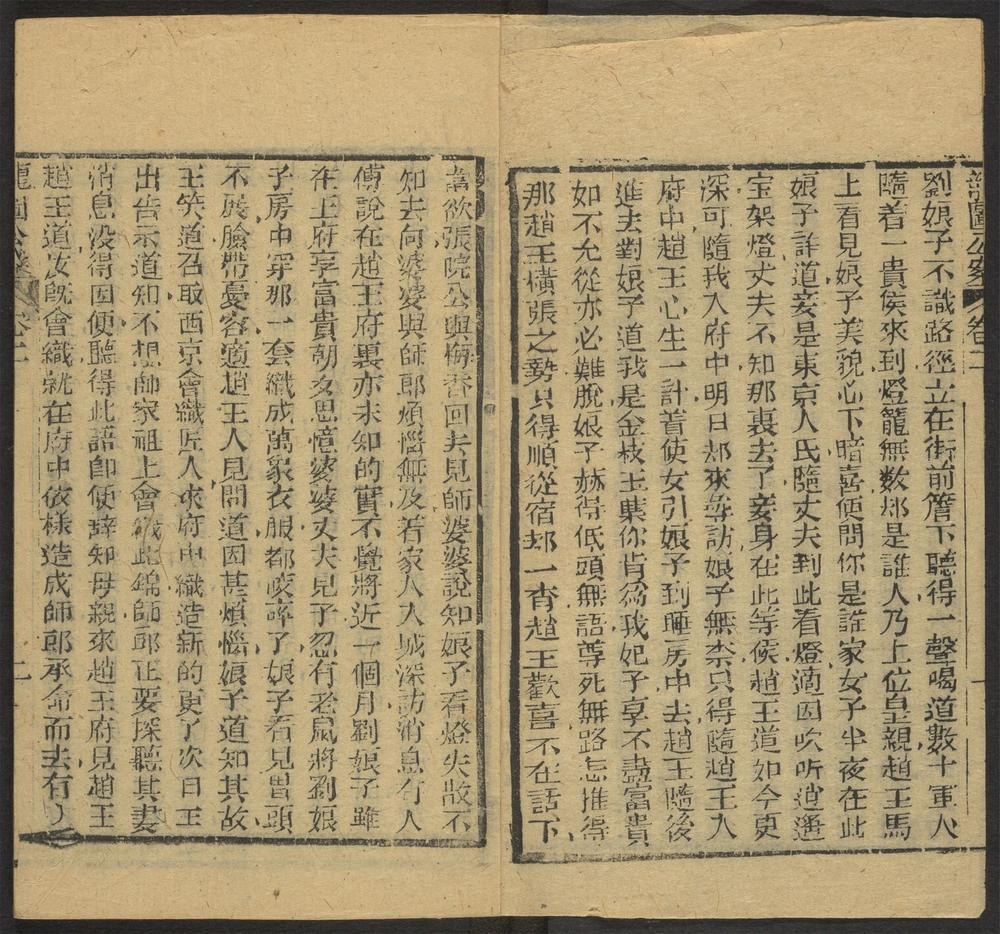 龍圖公案 卷二
劉娘子不識路徑立在街前簷下聽得一聲喝道數十軍人
隨着一貴侯來到燈籠無数却是誰人乃上位皇親趙王馬
上看見娘子美貌心下暗喜便問你是誰家女子半夜在此
娘子詐道妾是東京人氏隨丈夫到此看燈適因吹折逍遙
宝架燈丈夫不知那裏去了妾身在此等侯趙王道如今更
深可隨我入府中明日却來尋訪娘子無柰只得隨趙王入
府中趙王心生一計着使女引娘子到睡房中去趙王隨後
進去對娘子道我是金枝玉葉你肯爲我妃子享不盡富貴
如不允從亦必難脫娘子赫得低頭無語尋死無路怎推得
那趙王橫張之勢只得順從宿却一宵趙王歡喜不在話下
欲張院公與梅香回去見師婆婆說知娘子看燈失散不
知去向婆婆與師郎煩惱無及着家人入城深訪消息有人
傳說在趙王府裏亦未知的實不覺將近一個月劉娘子雖
在王府享富貴朝夕思憶婆婆丈夫兒子忽有老鼠將劉娘
子房中穿那一套織成萬象衣服都咬碎了娘子看見眉頭
不展臉帶憂容適趙王人見問道因甚煩惱娘子道知其故
王笑道召取西京會織匠人來府中織造新的更了次日王
出告示道知不想師家祖上會織此錦師郎正要探聽其妻
消息没得因便聽得此語卽便辞知母親來趙王府見趙王
趙王道汝旣會織就在府中依様造成師郎承命而去有
龍圖公案 卷二